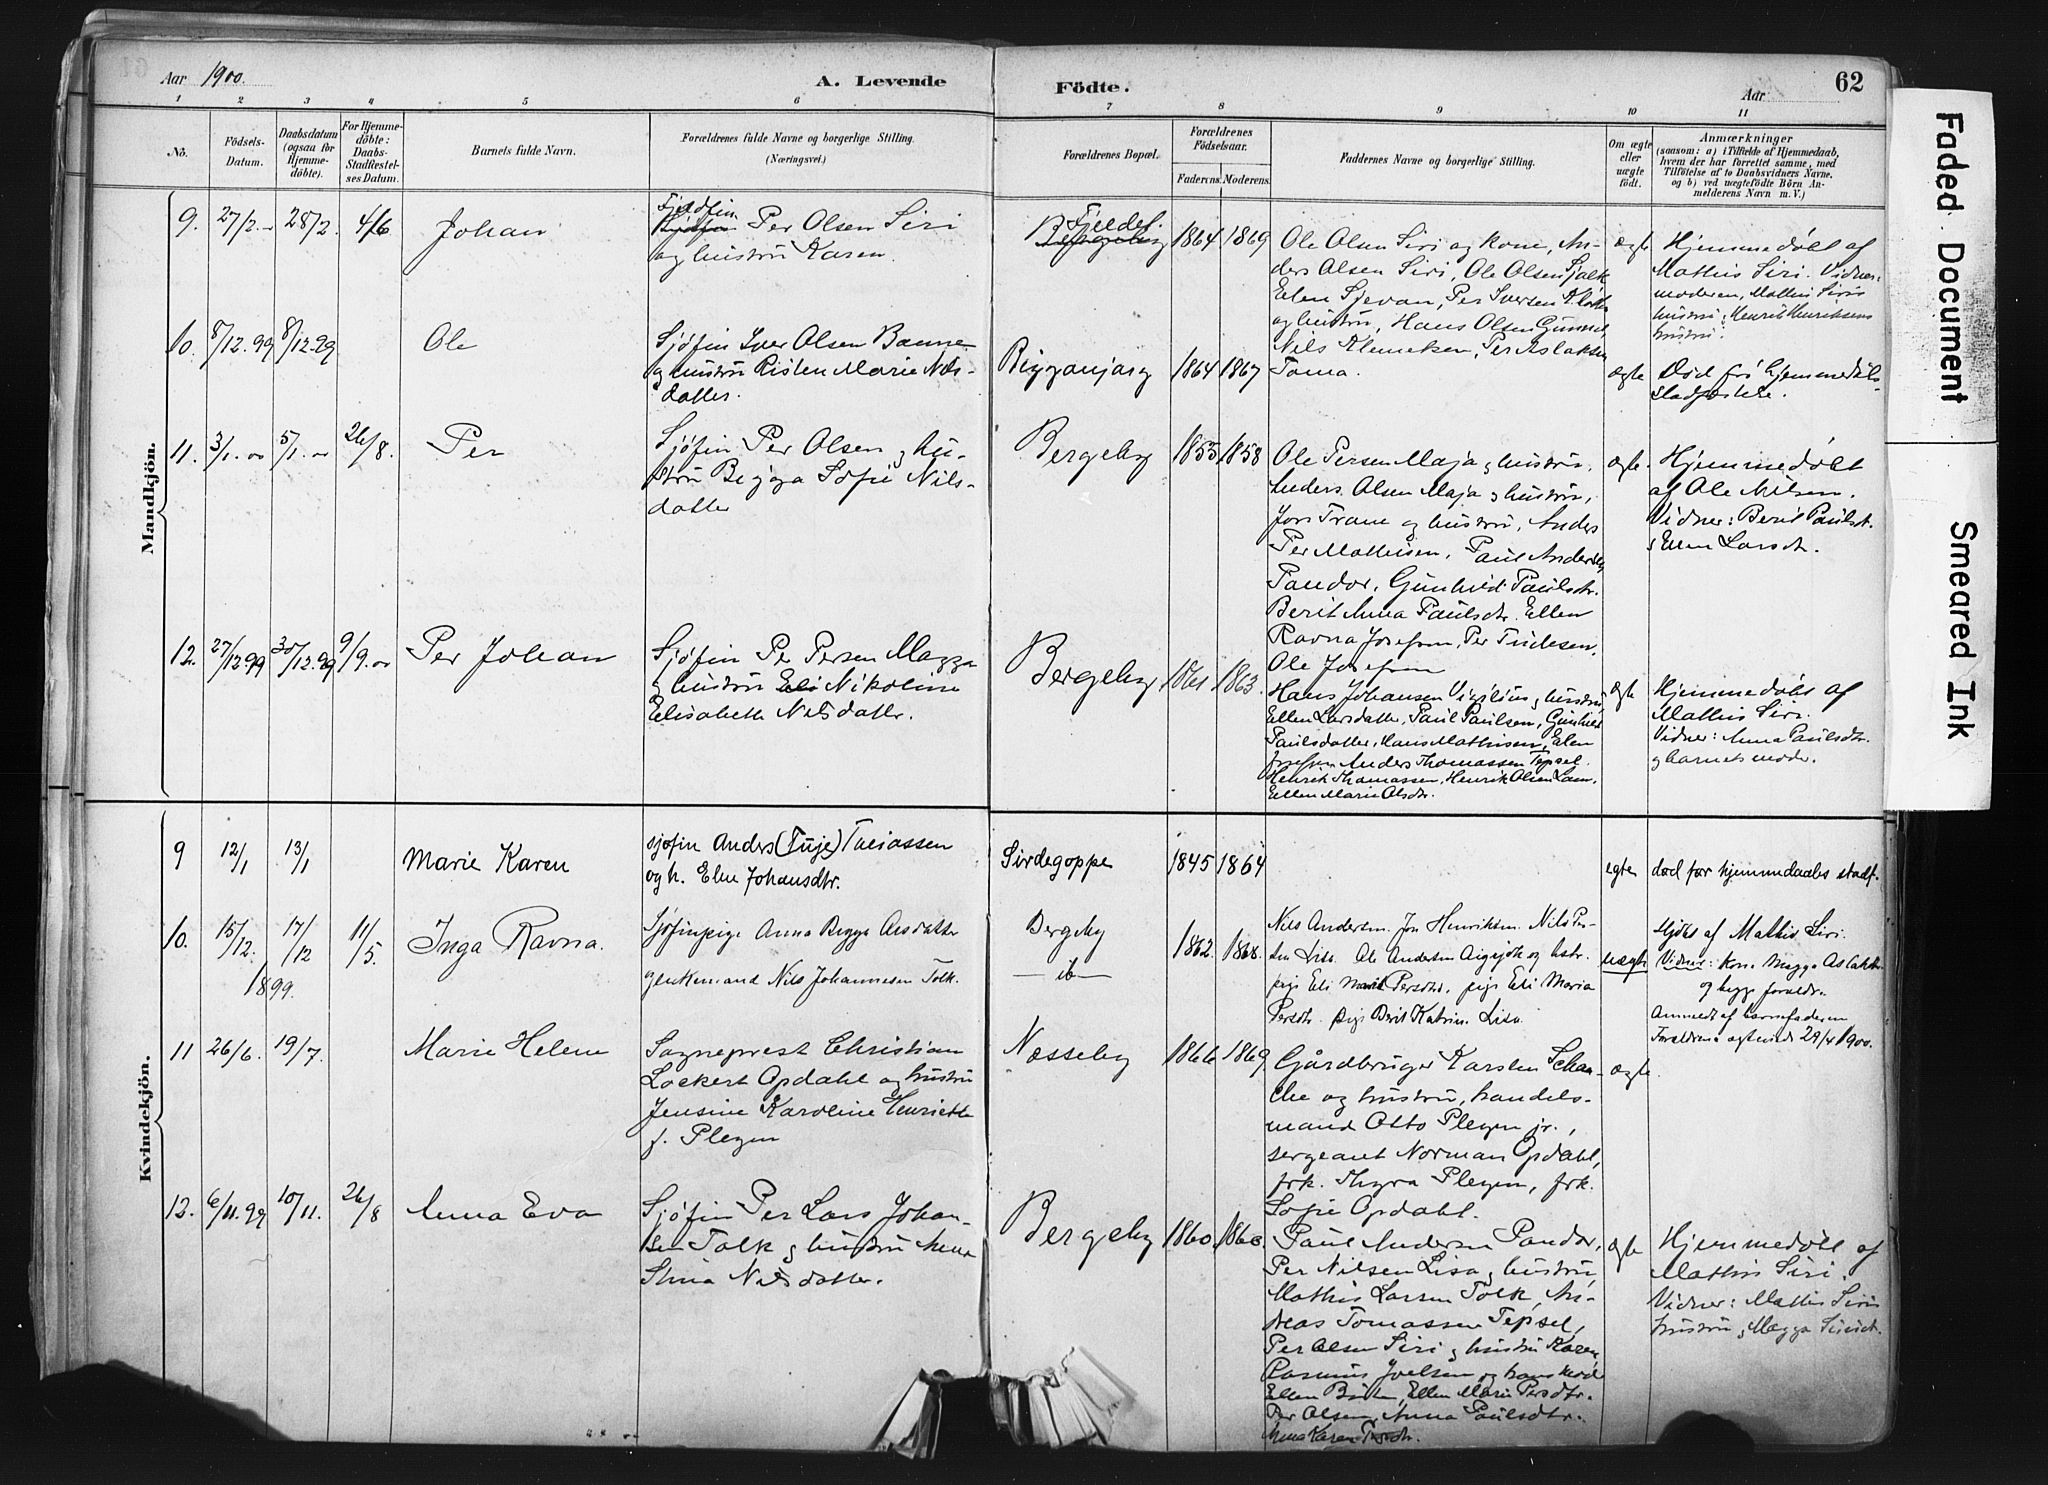 Aar 1900.
A. Levende
Födte.
Aar
62
1 2 3 4 5 6 7 8 9 10 11
Nò.
Födsels-
Datum.
Daabsdatum
(ogsaa for
Hjemme-
döbte).
For Hjemme-
döbte:
Daabs-
Stadfæstel-
ses Datum.
Barnets fulde Navn.
Forældrenes fulde Navne og borgerlige Stilling.
(Næringsvei.)
Forældrenes Bopæl.
Forældrenes
Födselsaar.
Faderens. Moderens.
Faddernes Navne og borgerlige Stilling.
Om ægte
eller
uægte
födt.
Anmærkninger
(saasom: a) i Tilfælde af Hjemmedaab,
hvem der har forrettet samme, med
Tilföielse af to Daabsvidners Navne.
og b) ved uægtefödte Börn An-
melderens Navn m.V.)
Mandkjön.
9. 27/2. 28/2. 4/6 Johan
Fjeldfin
Per Olsen Siri
og hustru Karen.
Fjeldet.
1864 1869
Ole Olsen Siri og kone, An-
ders Olsen Siri, Ole Olsen
Ellen Per Iversen
og hustru, Hans Olsen
Nils Klemetsen, Per Aslaksen
Toma.
ægte
Hjemmedøbt af
Mathis Siri. Vidner:
moderen, Mathis Siris
hustru, Henrik Henriksens
hustru.
10. 8/12.99 8/12.99 Ole
Sjøfin Iver Olsen Banne
og hustru Risten Marie Nils-
datter.
Bigganjarg 1864 1867
ægte
Død før hjemmedåbs-
stadfæstelse.
11. 3/1.00 5/1.00 26/8. Per
Sjøfin Per Olsen og hu-
stru Bigga Sofie Nils-
datter
Bergeby 1855 1858
Ole Persen Maja og hustru,
Anders Olsen Maja og hustru,
Jon Trane og hustru, Anders
Per Mathisen, Paul Andersen
Pandor, Gunhild Paulsdtr.
Berit Anna Paulsdtr. Ellen
Ravna Josefsen, Per Trulesen,
Ole Josefsen
ægte.
Hjemmedøbt
af Ole Nilsen.
Vidner: Berit Paulsdt.
Ellen Larsdtr.
12. 27/12.99 30/12.99 9/9.00 Per Johan
Sjøfin Per Persen Magga
og hustru Nikoline
Elisabeth Nilsdatter.
Bergeby 1861 1863.
Hans Johansen Vigilius og hustru,
Ellen Larsdatter, Paul Paulsen, Gunhild
Paulsdatter, Hans Mathisen, Ellen
Josefsen Anders Thomassen Tepsel.
Henrik Thomassen, Henrik Olsen
Ellen Marie Olsdtr.
ægte
Hjemmedøbt af
Mathis Siri.
Vidner: Anna Paulsdtr.
og barnets moder.
Kvindekjön.
9 12/1 13/1 Marie Karen
sjøfin Anders (Tuje) Tusiassen
og h. Elen Johansdtr.
Sirdegoppe 1845 1864
egte
død før hjemmedaabs stadf.
10. 15/12. 17/12 11/5. Inga Ravna.
1899.
Sjøfinpige Anna Bigga Arsdatter
og enkemand Nils Johannesen Tolk.
Bergeby
— ib —
1862. 1868.
Nils Andersen. Jon Henriksen. Nils Per-
sen Lisa. Ole Andersen og hstr.
pige Eli Marit Persdtr. pige Eli Maria
Persdtr. pige Berit Katrin. Lisa.
uægte
Hjdbt af Mathis Siri.
Vidner: Kone Magga Aslaksdtr.
og begge foreldr.
Anmeldt af barnefaderen
Foreldrene egteviede 29/4 1900.
11 26/6. 19/7. Marie Helene
Sogneprest Christian
Lockert Opdahl og hustru
Jensine Karoline Henriette
f. Plesym
Næsseby 1866 1869.
Gårdbruger Karsten Schan-
che og hustru, handels-
mand Otto Plesym jr.,
sergeant Norman Opdahl,
frk. Thyra Plesym, frk.
Sofie Opdahl.
ægte.
12. 6/11.99 10/11. 26/8 Anna Eva
Sjøfin Per Lars Johan-
sen Tolk og hustru Anna
Stina Nilsdatter.
Bergeby 1860. 1860.
Paul Andersen Pandor,
Per Nilsen Lisa og hustru
Mathis Larsen Tolk, An-
dreas Tomassen Tepsel,
Per Olsen Siri og hustru Karen
Rasmus Joelsen og hans
Ellen Ellen Marie Persdtr.
Per Olsen, Anna Paulsdtr.
Anna Karen
ægte
Hjemmedøbt af
Mathis Siri.
Vidner: Mathis Siris
hustru og Magga
Faded Document
Smeared Ink